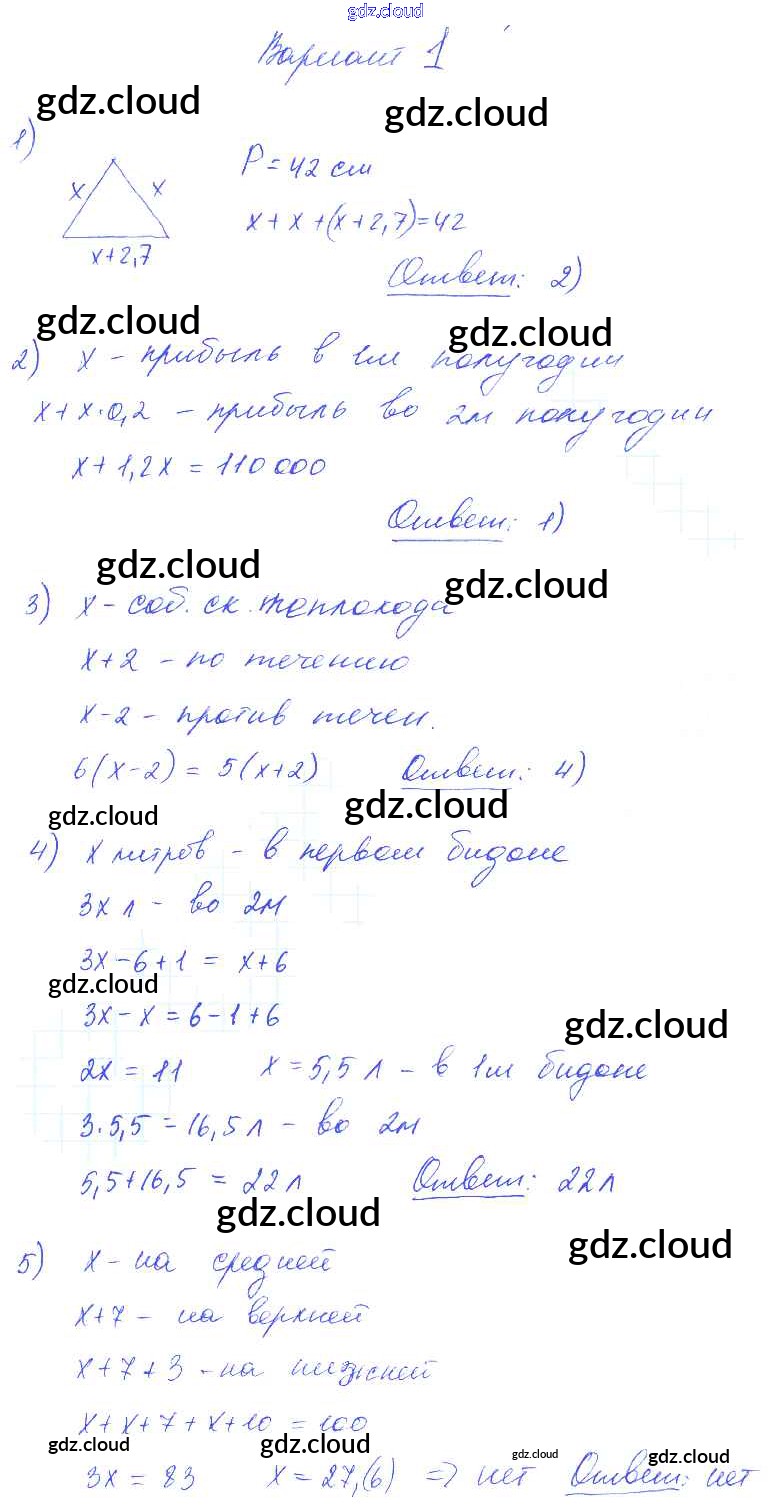 gdz.cloud
Вариант 1
gdz.cloud
gdz.cloud
1)
x x
x+2,7
P = 42 см
x + x + (x + 2,7) = 42
Ответ: 2)
gdz.cloud
gdz.cloud
2) x - прибыль в 1м полугодии
x + x · 0,2 - прибыль во 2м полугодии
x + 1,2x = 110 000
Ответ: 1)
gdz.cloud
gdz.cloud
3) x - соб. ск. теплохода
x + 2 - по течению
x - 2 - против течен.
6(x - 2) = 5(x + 2) Ответ: 4)
gdz.cloud
gdz.cloud
4) x литров - в первом бидоне
3x л - во 2м
3x - 6 + 1 = x + 6
gdz.cloud
3x - x = 6 - 1 + 6
gdz.cloud
2x = 11 x = 5,5 л - в 1м бидоне
3 · 5,5 = 16,5 л - во 2м
5,5 + 16,5 = 22 л Ответ: 22 л
gdz.cloud
gdz.cloud
5) x - на средней
x + 7 - на верхней
x + 7 + 3 - на нижней
x + x + 7 + x + 10 = 100
gdz.cloud
gdz.cloud
gdz.cloud
gdz.cloud
3x = 83 x = 27,(6) => нет Ответ: нет